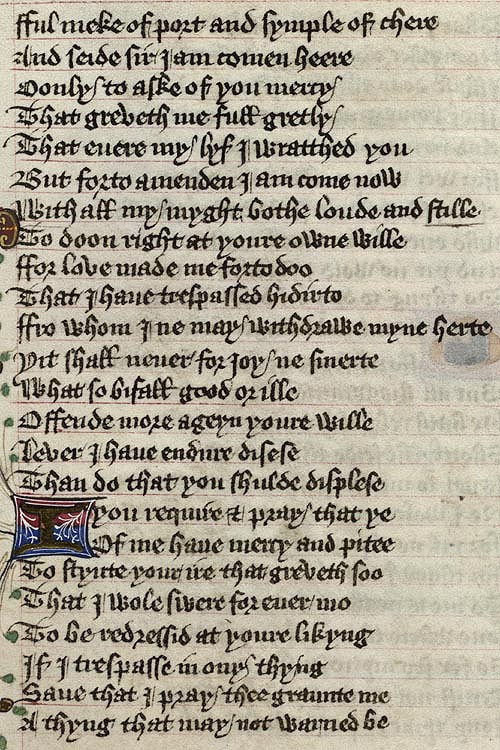 fful meke of port and symple of chere
And seide sir I am comen heere
Oonly to aske of you mercy
That greveth me full gretly
That euere my lyf I wratthed you
But forto amenden I am come now
With all my myght bothe loude and stille
To doon right at youre owne wille
ffor love made me forto doo
That I haue trespassed hidirto
ffro whom I ne may withdrawe myne herte
Yit shall neuer for Joy ne smerte
What so bifall good or ille
Offende more ageyn youre wille
Lever I haue endure disese
Than do that you shulde displese
I you require & pray that ye
Of me haue mercy and pitee
To stynte your ire that greveth soo
That I wole swere for euer mo
To be redressid at youre likyng
If I trespasse in ony thyng
Saue that I pray thee graunte me
A thyng that may not warned be